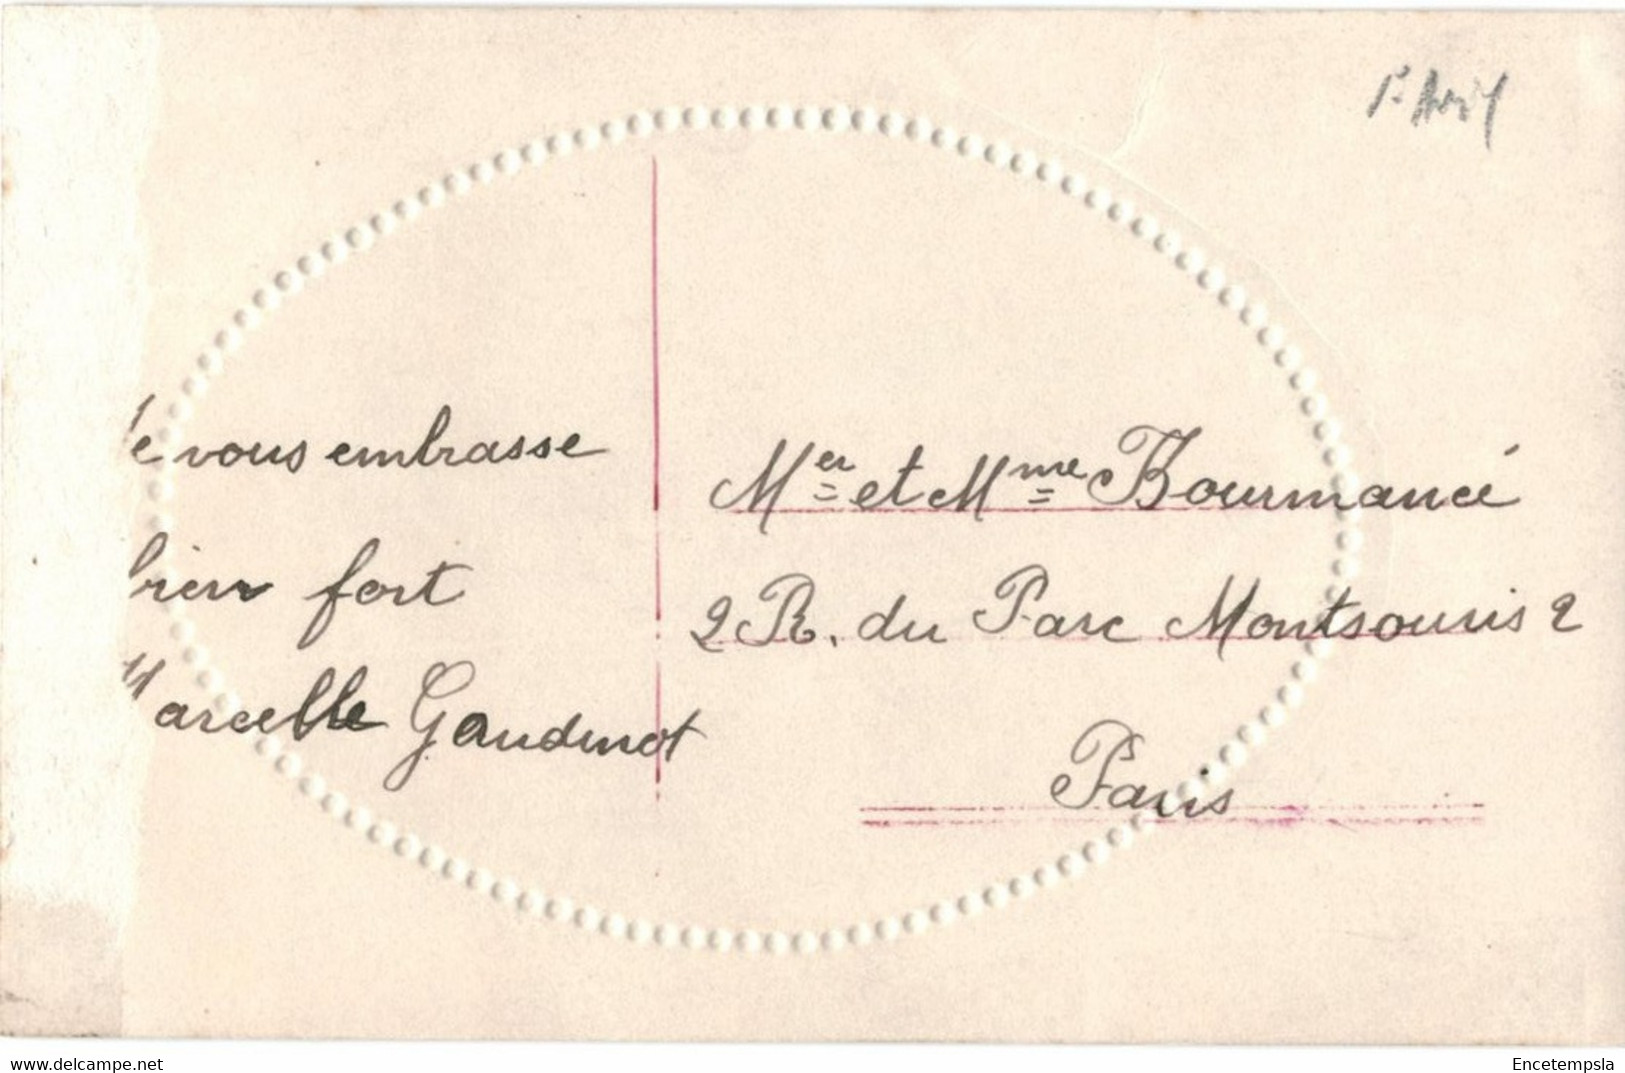 1r Avril
Je vous embrasse
bien fort
Marcelle Gaudinot
Mer et Mme Bourmancé
2 R. du Parc Montsouris 2
Paris
https://www.delcampe.net
Encetempsla